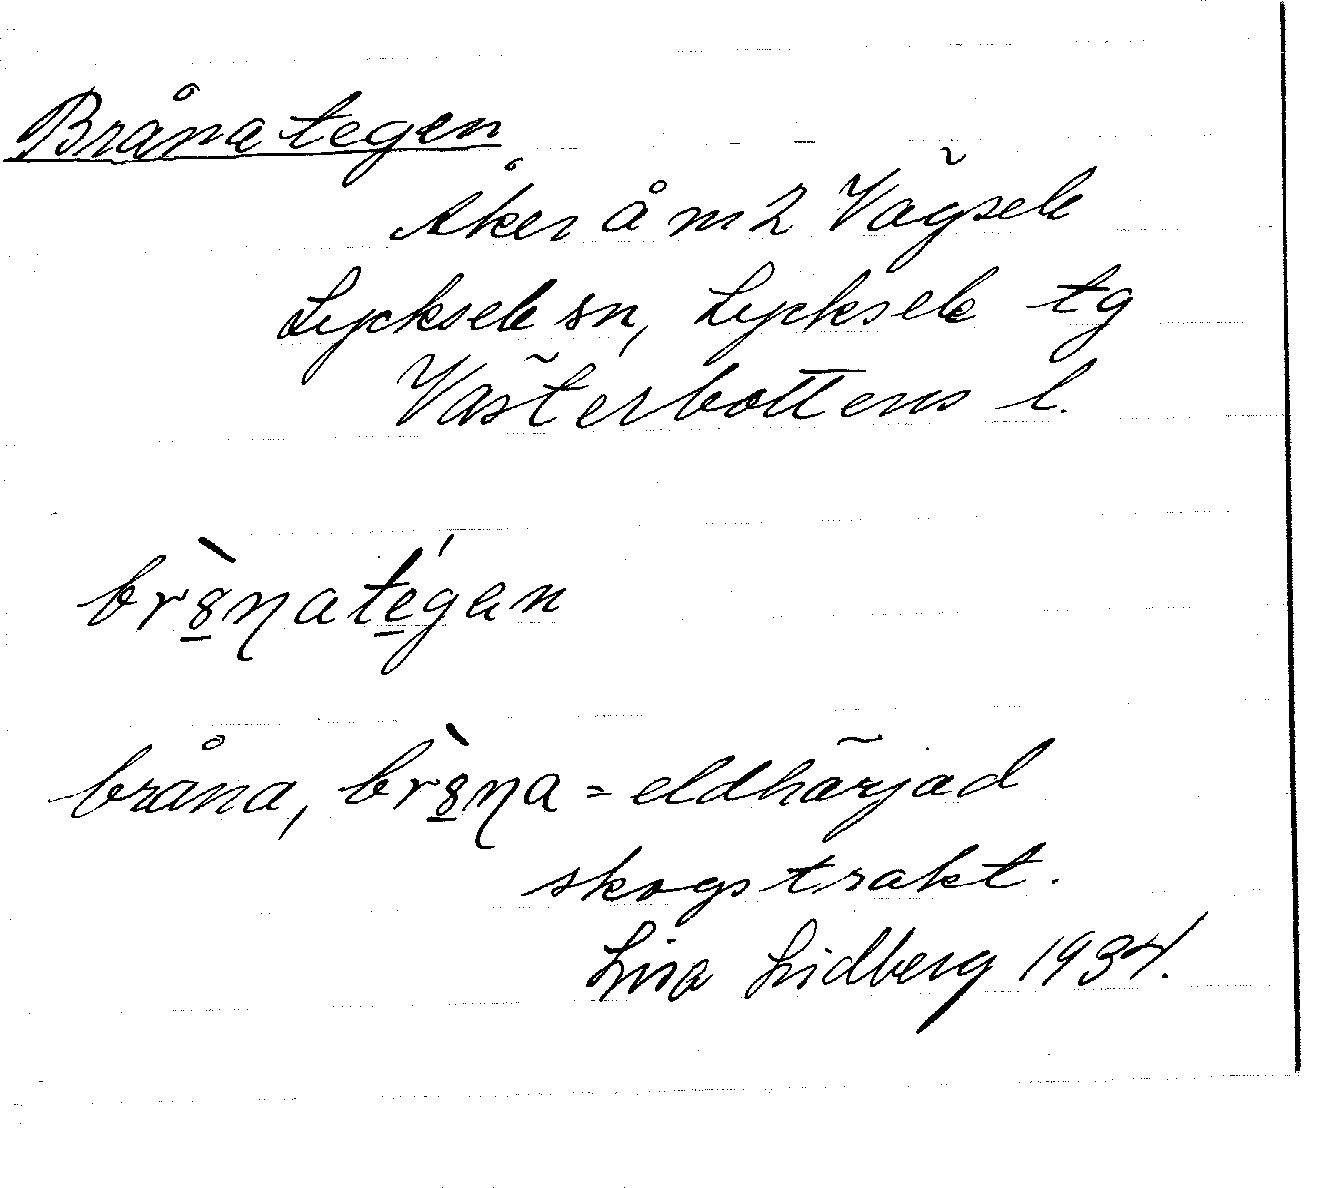 Brånategen
Åker å nr 2 Vägsele
Lycksele sn, Lycksele tg
Västerbottens l.
br8̱̀ŋateǵ̱en
bråna, br8̱̀ŋa = eldhärjad
skogstrakt.
Lisa Lidberg 1934.